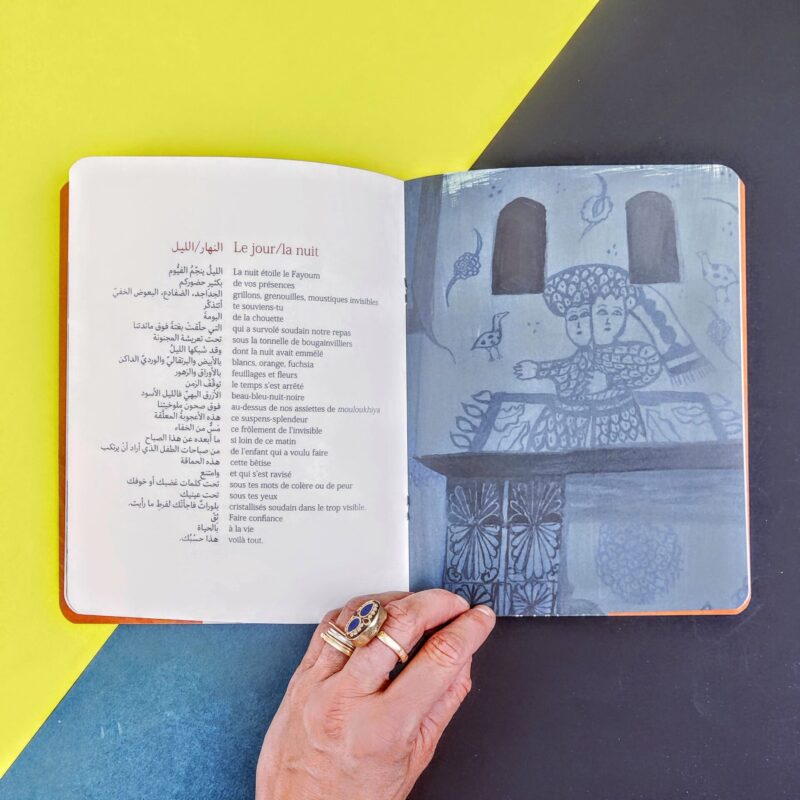 النهار/الليل
الليلُ ينجِّمُ الفيُّوم
بكثير حضوركم
الجداجد، الضفادع، البعوض الخفيّ
أتتذكَّر
اليومةَ
التي حلَّقتْ بغتةً فوق مائدتنا
تحت تعريشة المجنونة
وقد شبكها الليلُ
بالأبيض والبرتقاليّ والورديّ الداكن
بالأوراق والزهور
توقَّف الزمن
الأزرق البهيّ كالليل الأسود
فوق صحون ملوخيتنا
هذه الأعجوبة المعلَّقة
مسٌّ من الخفاء
ما أبعده عن هذا الصباح
من صباحات الطفل الذي أراد أنْ يرتكب
هذه الحماقة
وامتنع
تحت كلمات غضبك أو خوفك
تحت عينيك
بلوراتٌ فاجأتْك لفرطِ ما رأيت.
ثِقْ
بالحياة
هذا حسْبُك.
Le jour/la nuit
La nuit étoile le Fayoum
de vos présences
grillons, grenouilles, moustiques invisibles
te souviens-tu
de la chouette
qui a survolé soudain notre repas
sous la tonnelle de bougainvilliers
dont la nuit avait emmêlé
blancs, orange, fuchsia
feuillages et fleurs
le temps s'est arrêté
beau-bleu-nuit-noire
au-dessus de nos assiettes de mouloukhiya
ce suspens-splendeur
ce frôlement de l'invisible
si loin de ce matin
de l'enfant qui a voulu faire
cette bêtise
et qui s'est ravisé
sous tes mots de colère ou de peur
sous tes yeux
cristallisés soudain dans le trop visible.
Faire confiance
à la vie
voilà tout.